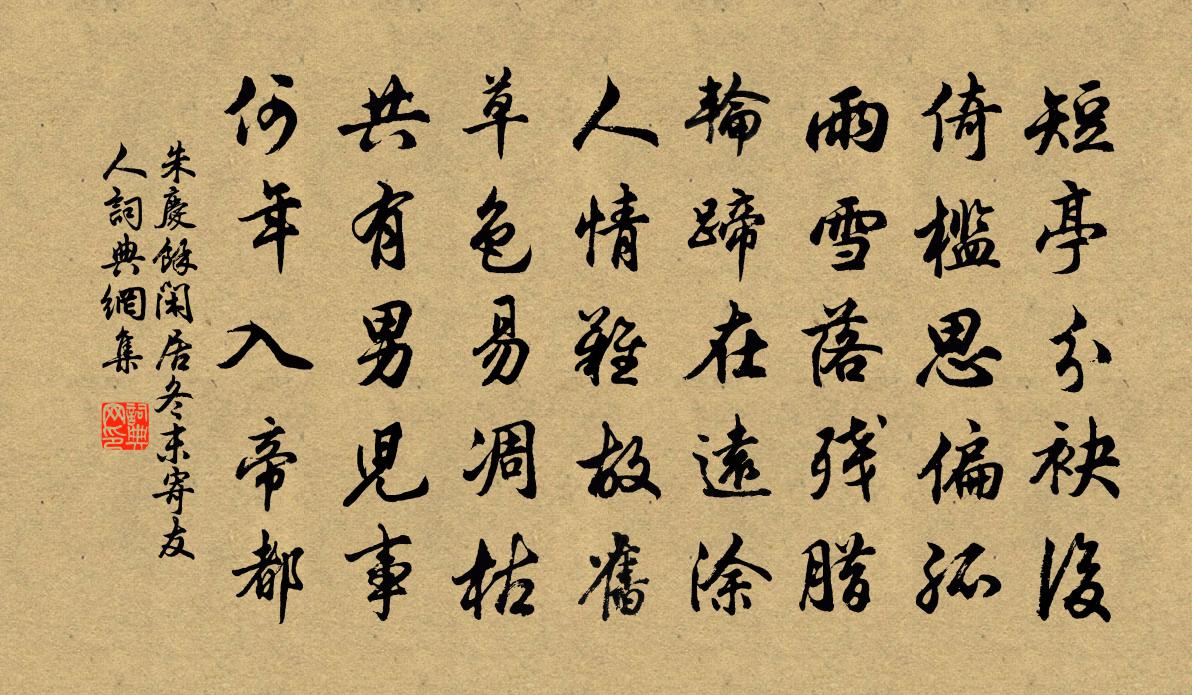 短亭分袂後
倚檻思偏孤
雨雪落殘腊
輪蹄在遠涂
人情難故舊
草色易凋枯
共有男兒事
何年入帝都
朱慶餘閑居冬末寄友
人詞典網集
詞典
网印